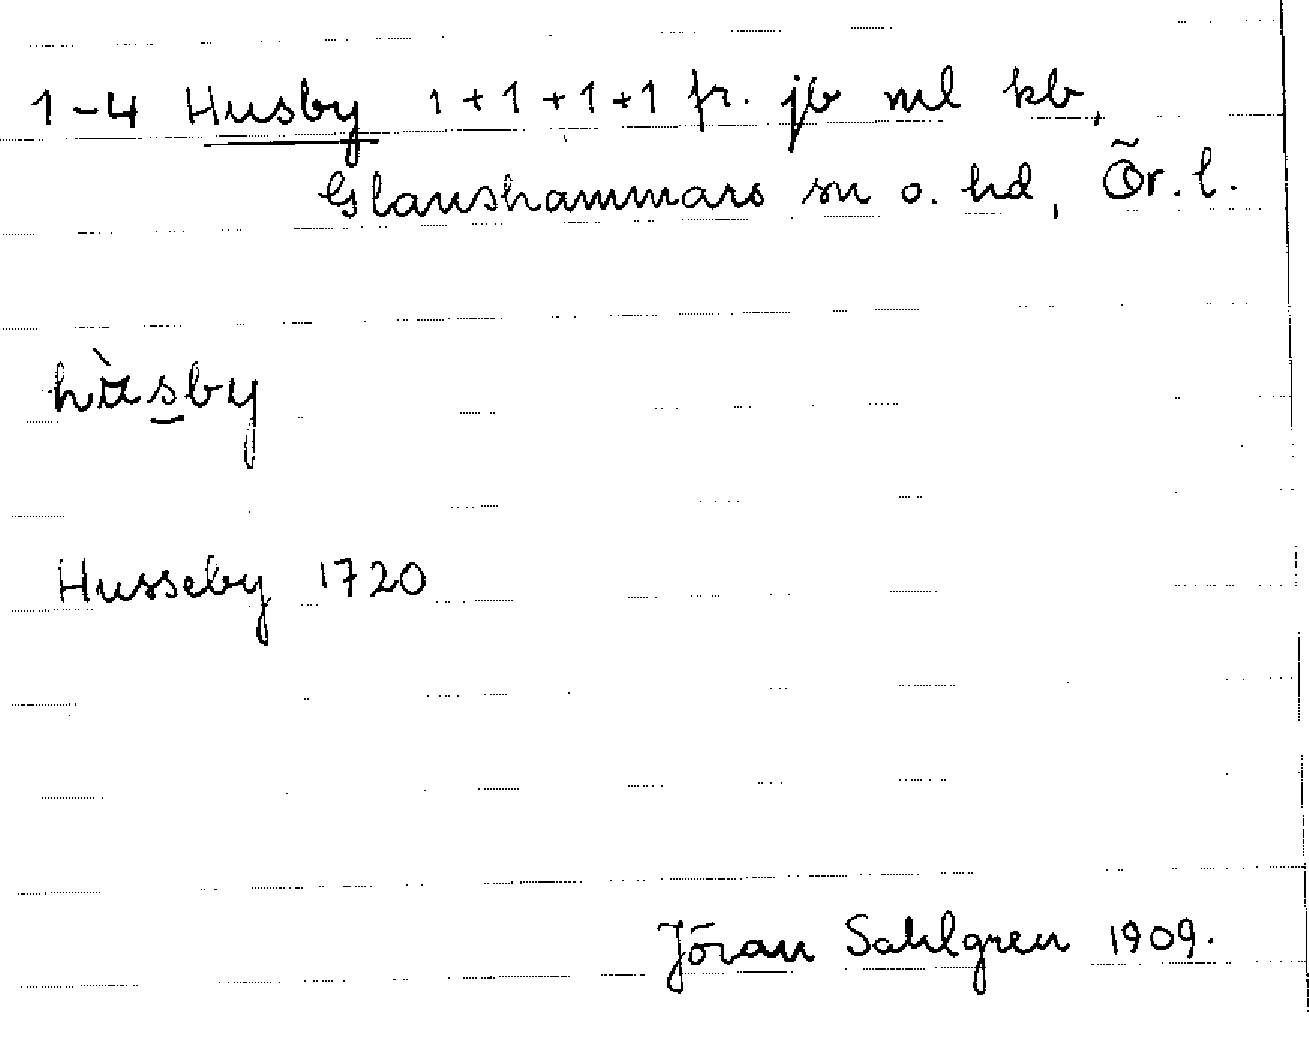 1-4 Husby 1+1+1+1 fr. jb ml kb,
Glanshammars sn o. hd, Ör. l.
hùsby
Husseby 1720
Jöran Sahlgren 1909.